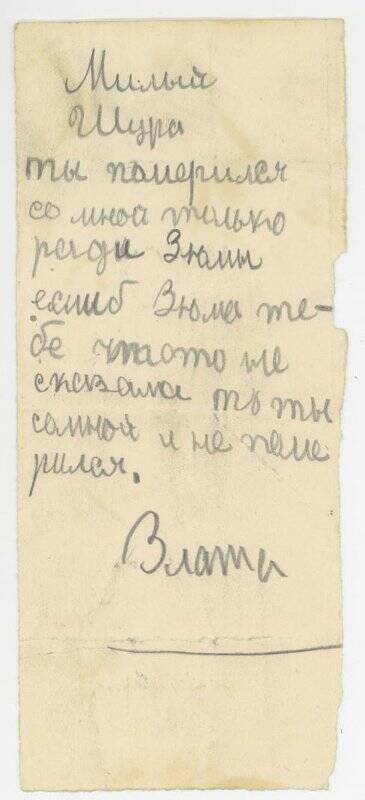 Милый
Шура
ты померился
со мной только
ради Зюмы
еслиб Зюма те-
бе чтото не
сказала то ты
самной и не поме
рился.
Злата